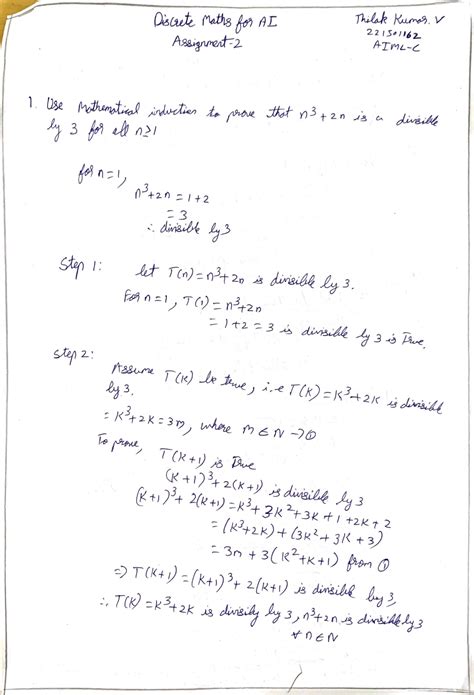 Discrete Maths for AI
Assignment-2
Thilak Kumar. V
221501162
AIML-C
1. Use Mathematical induction to prove that n³+2n is a divisible
by 3 for all n≥1
for n=1,
n³+2n = 1+2
= 3
∴ divisible by 3
Step 1: let T(n) = n³+2n is divisible by 3.
For n=1, T(1) = n³+2n
= 1+2 = 3 is divisible by 3 is True.
Step 2:
Assume T(K) be true, i.e T(K) = K³+2K is divisible
by 3.
= K³+2K = 3m, where M ∈ N → ①
To prove, T(K+1) is True
(K+1)³+2(K+1) is divisible by 3
(K+1)³+2(K+1) = K³+3K²+3K+1+2K+2
= (K³+2K)+(3K²+3K+3)
= 3m+3(K²+K+1) from ①
⇒ T(K+1) = (K+1)³+2(K+1) is divisible by 3,
∴ T(K) = K³+2K is divisily by 3, n³+2n is divisible by 3
∀ n∈N